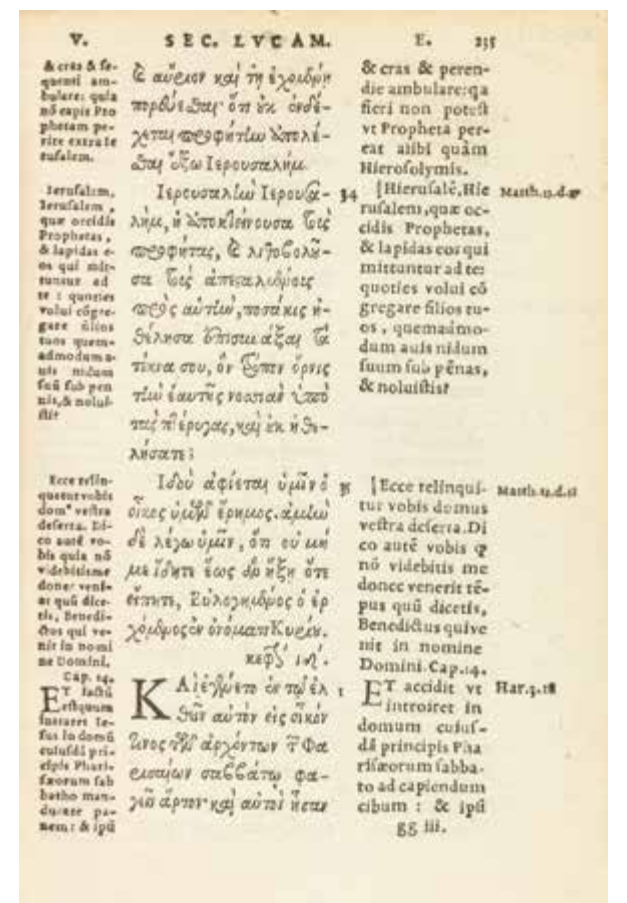 V. SEC. LVCAM. E. 235
& cras & se-
quenti am-
bulare: quia
nō capit Pro
phetam pe-
rire extra Ie
rusalem.
Ierusalem,
Ierusalem,
quæ occidis
Prophetas,
& lapidas e-
os qui mit-
tuntur ad
te: quoties
volui cōgre-
gare filios
tuos quem-
admodum a-
uis nidum
suū sub pen
nis, & nolui-
sti?
Ecce relin-
quetur vobis
domꝰ vestra
deserta. Di-
co autē vo-
bis quia nō
videbitis me
donec veni-
at quū dice-
tis, Benedi-
ctus qui ve-
nit in nomi
ne Domini.
Cap. 14.
ET factū
est quum
intraret Ie-
sus in domū
cuiusdā pri-
cipis Phari-
sæorum sab
batho man-
ducare pa-
nem: & ipsi
& αὔριον καὶ τῇ ἐχομένῃ
πορεύεσθαι· ὅτι οὐκ ἐνδέ-
χεται προφήτην ἀπολέ-
σθαι ἔξω Ιερουσαλήμ.
Ιερουσαλὴμ Ιερουσα-
λὴμ, ἡ ἀποκτείνουσα τοὺς
προφήτας, & λιθοβολοῦ-
σα τοὺς ἀπεσταλμένους
πρὸς αὐτὴν, ποσάκις ἠ-
θέλησα ἐπισυνάξαι τὰ
τέκνα σου, ὃν τρόπον ὄρνις
τὴν ἑαυτῆς νοσσιὰν ὑπὸ
τὰς πτέρυγας, καὶ οὐκ ἠθε-
λήσατε;
Ιδοὺ ἀφίεται ὑμῖν ὁ
οἶκος ὑμῶν ἔρημος. ἀμὴν
δὲ λέγω ὑμῖν, ὅτι οὐ μή
με ἴδητε ἕως ἂν ἥξῃ ὅτε
εἴπητε, Εὐλογημένος ὁ ἐρ
χόμενος ἐν ὀνόματι Κυρίου.
κεφ. ιδ.
ΚΑὶ ἐγένετο ἐν τῷ ἐλ
θεῖν αὐτὸν εἰς οἶκόν
τινος τῶν ἀρχόντων τ Φα
ρισαίων σαββάτῳ φα-
γεῖν ἄρτον· καὶ αὐτοὶ ἦσαν
& cras & peren-
die ambulare: qa
fieri non potest
vt Propheta per-
eat alibi quàm
Hierosolymis.
34 Hierusalē, Hie Matth. 23. d. 37
rusalem, quæ oc-
cidis Prophetas,
& lapidas eos qui
mittuntur ad te:
quoties volui cō
gregare filios tu-
os, quemadmo-
dum auis nidum
suum sub pēnas,
& noluistis?
35 Ecce relinqui- Matth. 23. d. 38
tur vobis domus
vestra deserta. Di
co autē vobis ꝙ
nō videbitis me
donec venerit tē-
pus quū dicetis,
Benedictus qui ve
nit in nomine
Domini. Cap. 14.
1 ET accidit vt Har. 3. 18
introiret in
domum cuius-
dā principis Pha
risæorum sabba-
to ad capiendum
cibum: & ipsi
gg iii.